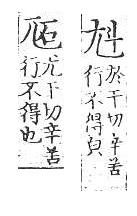 於干切辛苦
行不得皃
尤干切辛苦
行不得也